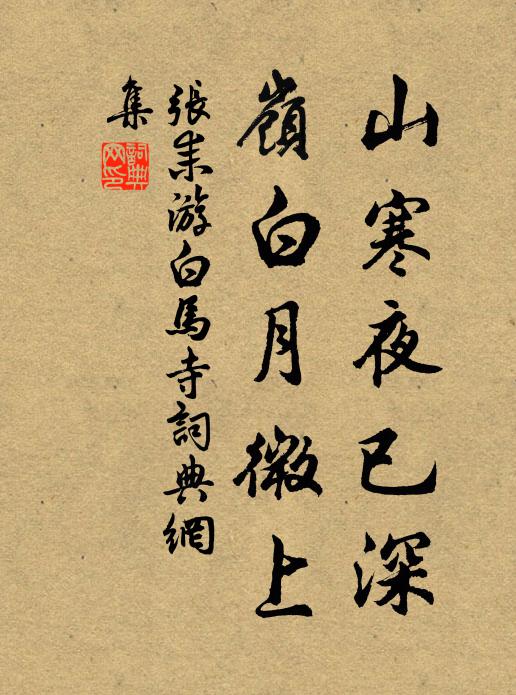 山寒夜已深
嶺白月微上
張耒游白馬寺詞典網
集
詞典網印